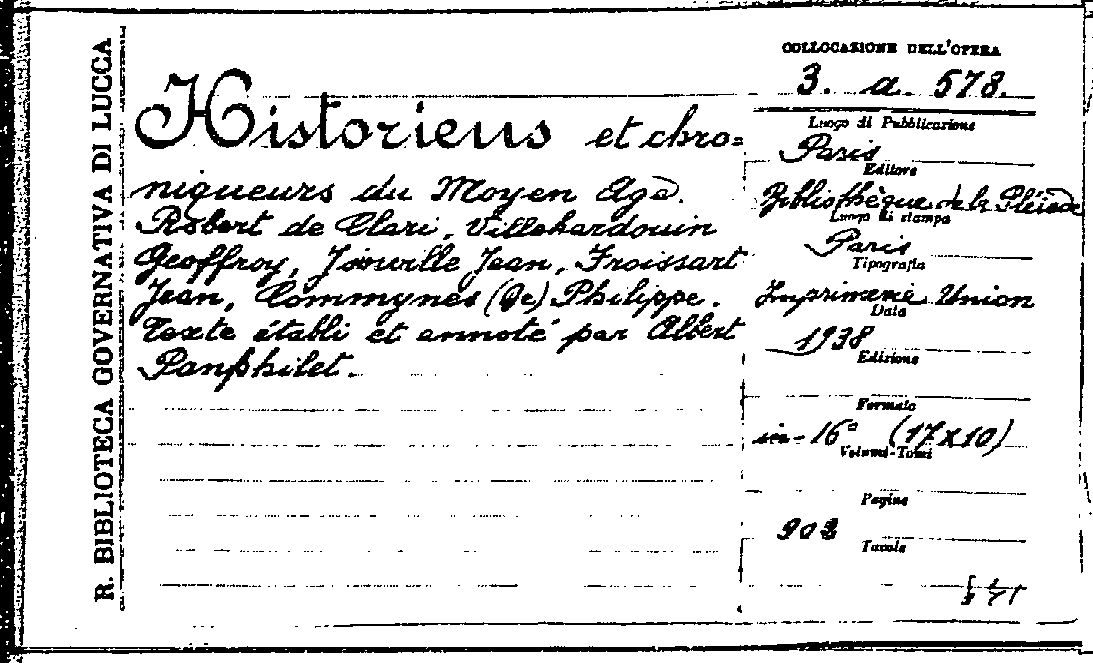 R. BIBLIOTECA GOVERNATIVA DI LUCCA
Historiens et chro=
niqueurs du Moyen Age.
Robert de Clari, Villehardouin
Geoffroy, Joinville Jean, Froissart
Jean, Commynes (De) Philippe.
Texte établi et annoté par Albert
Panphilet.
COLLOCAZIONE DELL'OPERA
3. a. 578.
Luogo di Pubblicazione
Paris
Editore
Bibliothèque de la Pléiade
Luogo di stampa
Paris
Tipografia
Imprimerie Union
Data
1938
Edizione
Formato
in-16° (17x10)
Volumi-Tomi
Pagine
902
Tavole